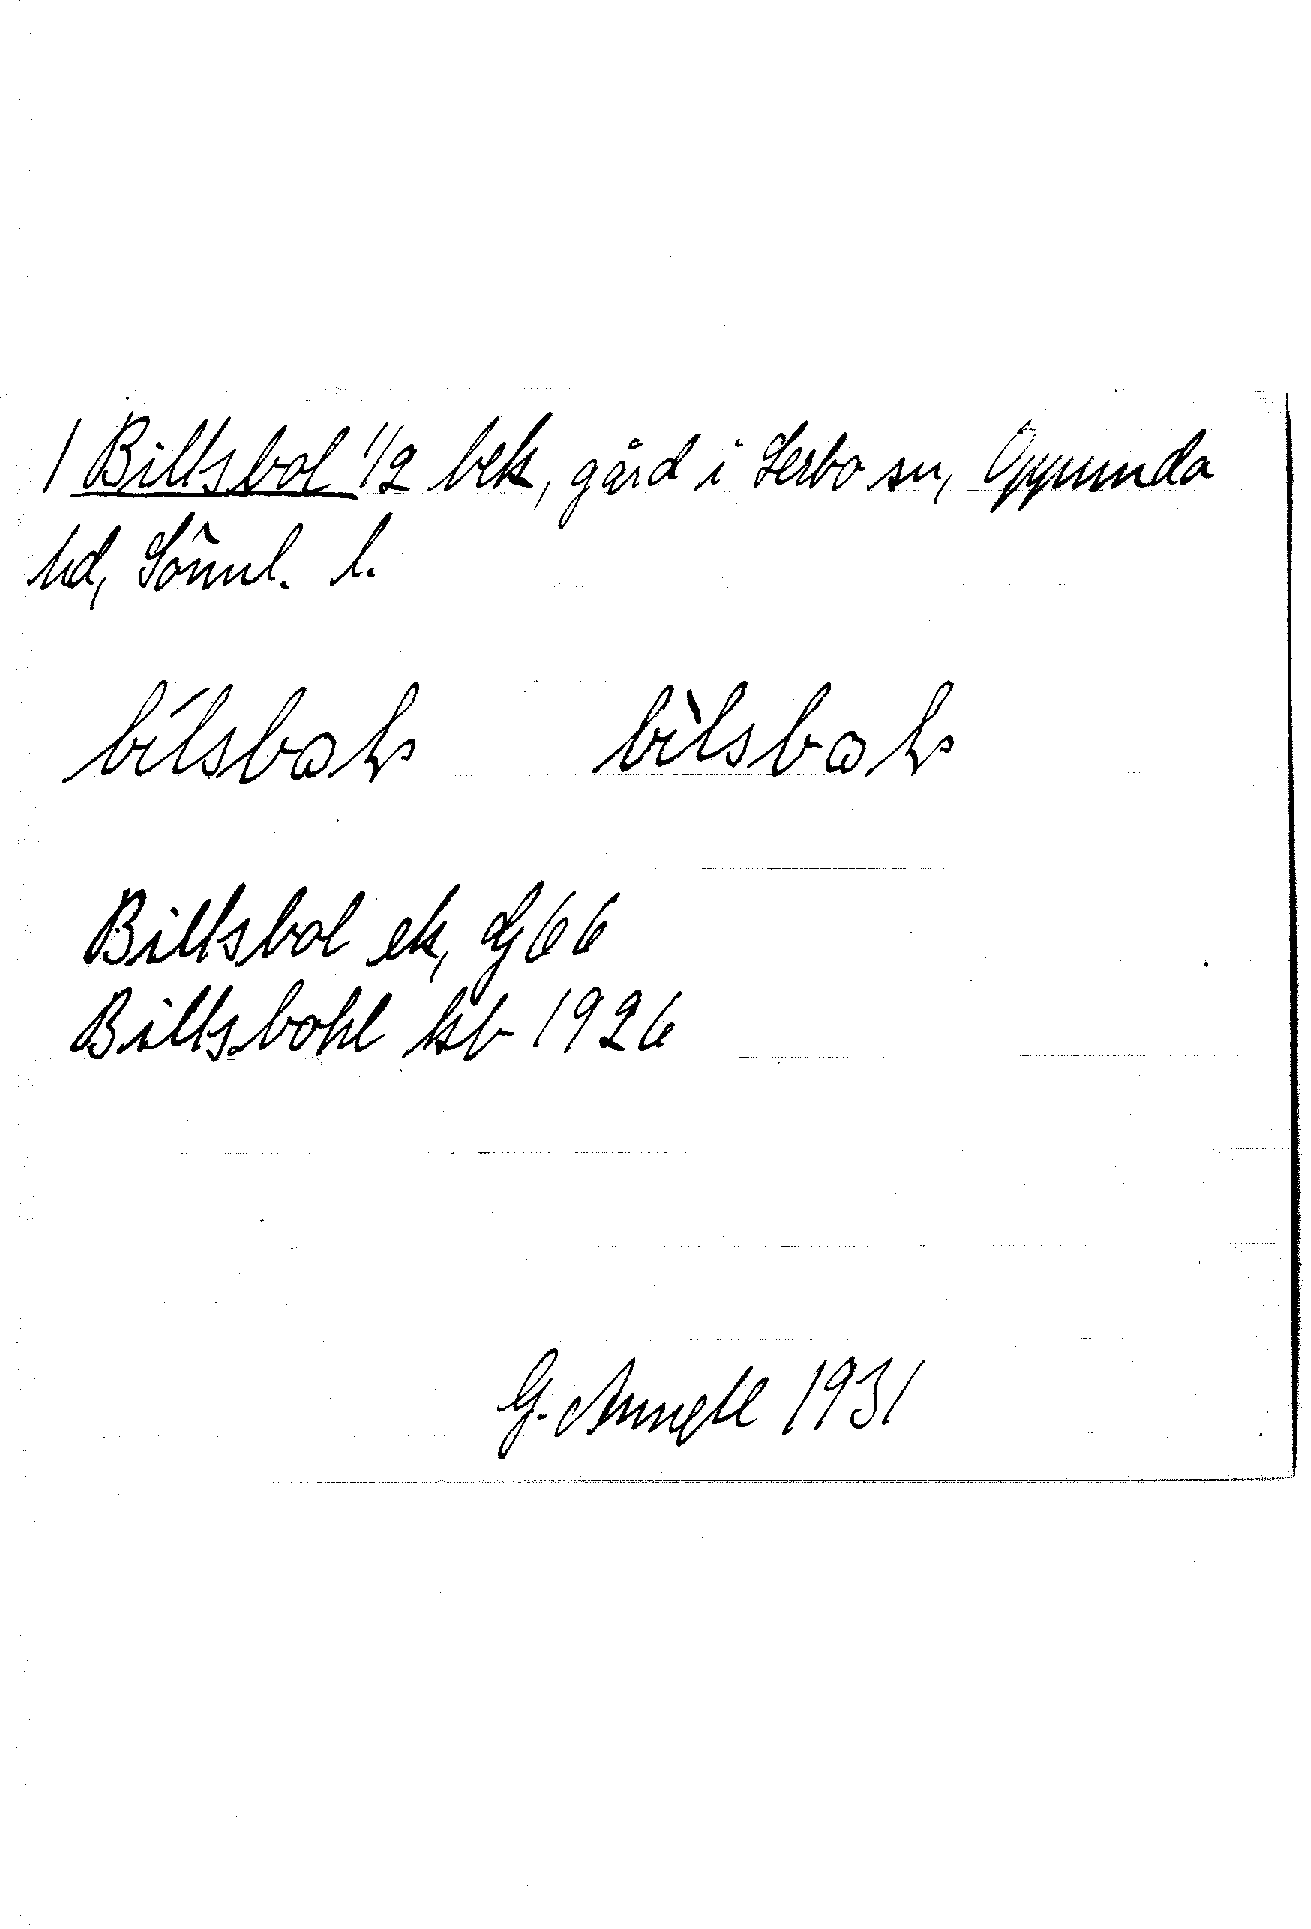 1 Billsbol 1/2 bek, gård i Lerbo sn, Oppunda
hd, Sörml. l.
bílsbωⱡ bìlsbωⱡ
Billsbol ek, dj 66
Billsbohl kb 1926
G. Annell 1931